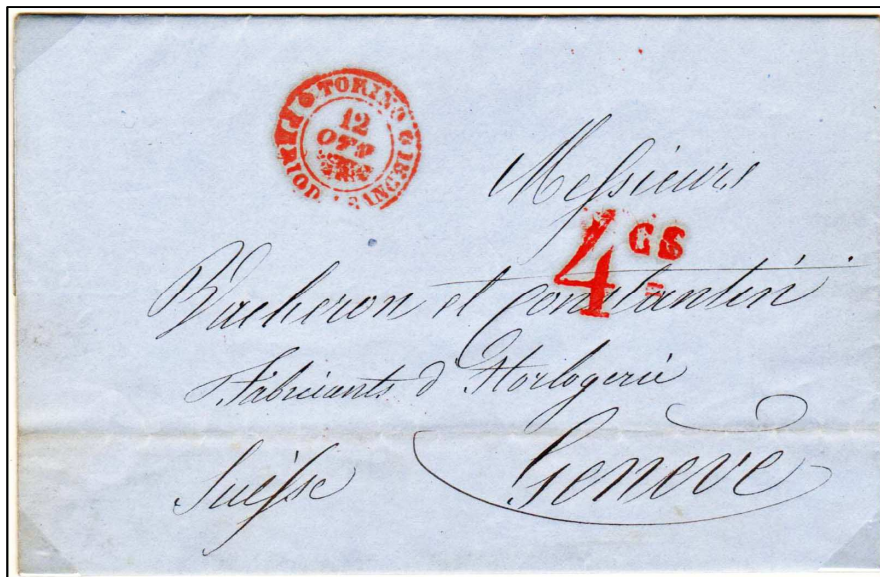 TORINO
12
OTT
Messieurs
4 CS
Vacheron et Constantin
Fabricants d'Horlogerie
Genève
Suisse